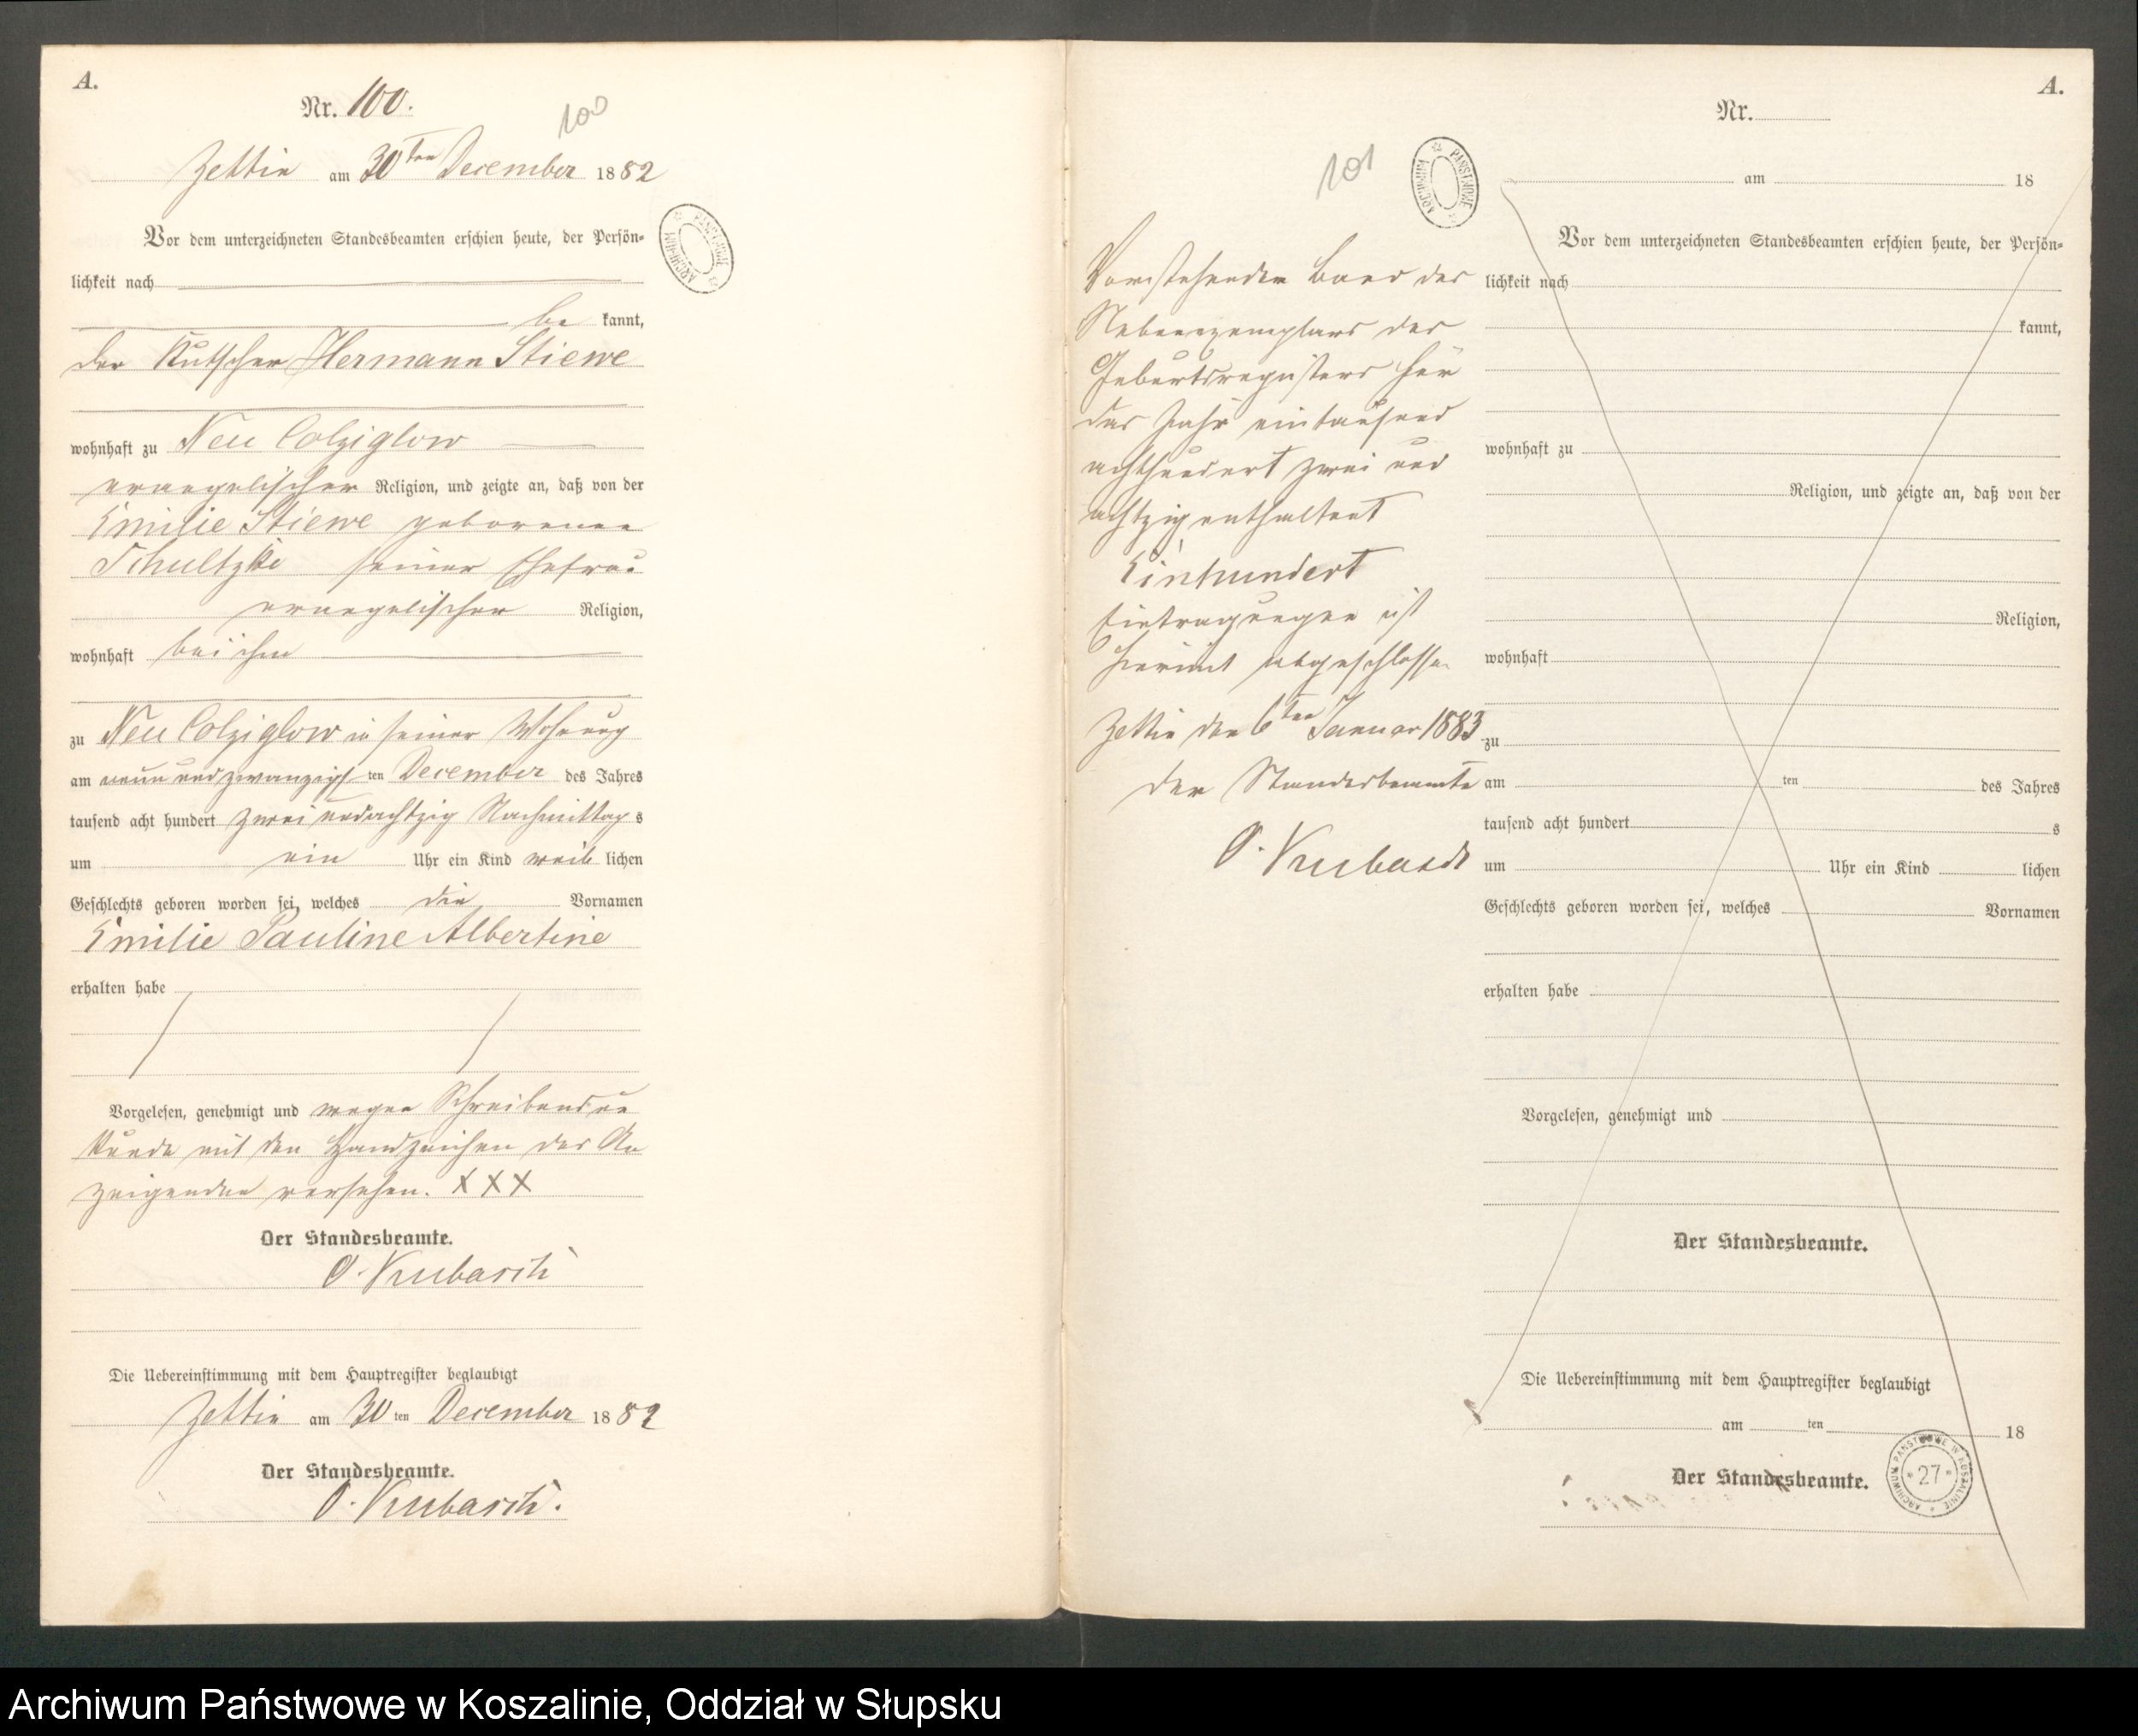 A.
Nr. 100.
100
Zettin am 30ten December 1882
Vor dem unterzeichneten Standesbeamten erschien heute, der Persön=
lichkeit nach
be kannt,
der Kutscher Hermann Stiewe
wohnhaft zu Neu Colziglow
evangelischer Religion, und zeigte an, daß von der
Emilie Stiewe geborenen
Schultzke seiner Ehefrau
evangelischer Religion,
wohnhaft bei ihm
zu Neu Colziglow in seiner Wohnung
am neun und zwanzigsten December des Jahres
tausend acht hundert zwei und achtzig Nachmittags
um ein Uhr ein Kind weiblichen
Geschlechts geboren worden sei, welches die Vornamen
Emilie Pauline Albertine
erhalten habe
Vorgelesen, genehmigt und wegen Schreibensun
kunde mit den Handzeichen des An
zeigenden versehen. XXX
Der Standesbeamte.
O. Kubasch
Die Uebereinstimmung mit dem Hauptregister beglaubigt
Zettin am 30 ten December 1882
Der Standesbeamte.
O. Kubasch.
ARCHIWUM PAŃSTWOWE
101
ARCHIWUM PAŃSTWOWE
Vorstehender Band des
Nebenexemplars des
Geburtsregisters für
das Jahr eintausend
achthundert zwei und
achtzig enthaltend
Einhundert
Eintragungen ist
hiermit abgeschlossen
Zettin den 6ten Januar 1883
Der Standesbeamte
O. Kubasch
A.
Nr.
am 18
Vor dem unterzeichneten Standesbeamten erschien heute, der Persön=
lichkeit nach
kannt,
wohnhaft zu
Religion, und zeigte an, daß von der
Religion,
wohnhaft
zu
am ten des Jahres
tausend acht hundert s
um Uhr ein Kind lichen
Geschlechts geboren worden sei, welches Vornamen
erhalten habe
Vorgelesen, genehmigt und
Der Standesbeamte.
Die Uebereinstimmung mit dem Hauptregister beglaubigt
am ten 18
Der Standesbeamte.
ARCHIWUM PAŃSTWOWE W KOSZALINIE
*27*
Archiwum Państwowe w Koszalinie, Oddział w Słupsku